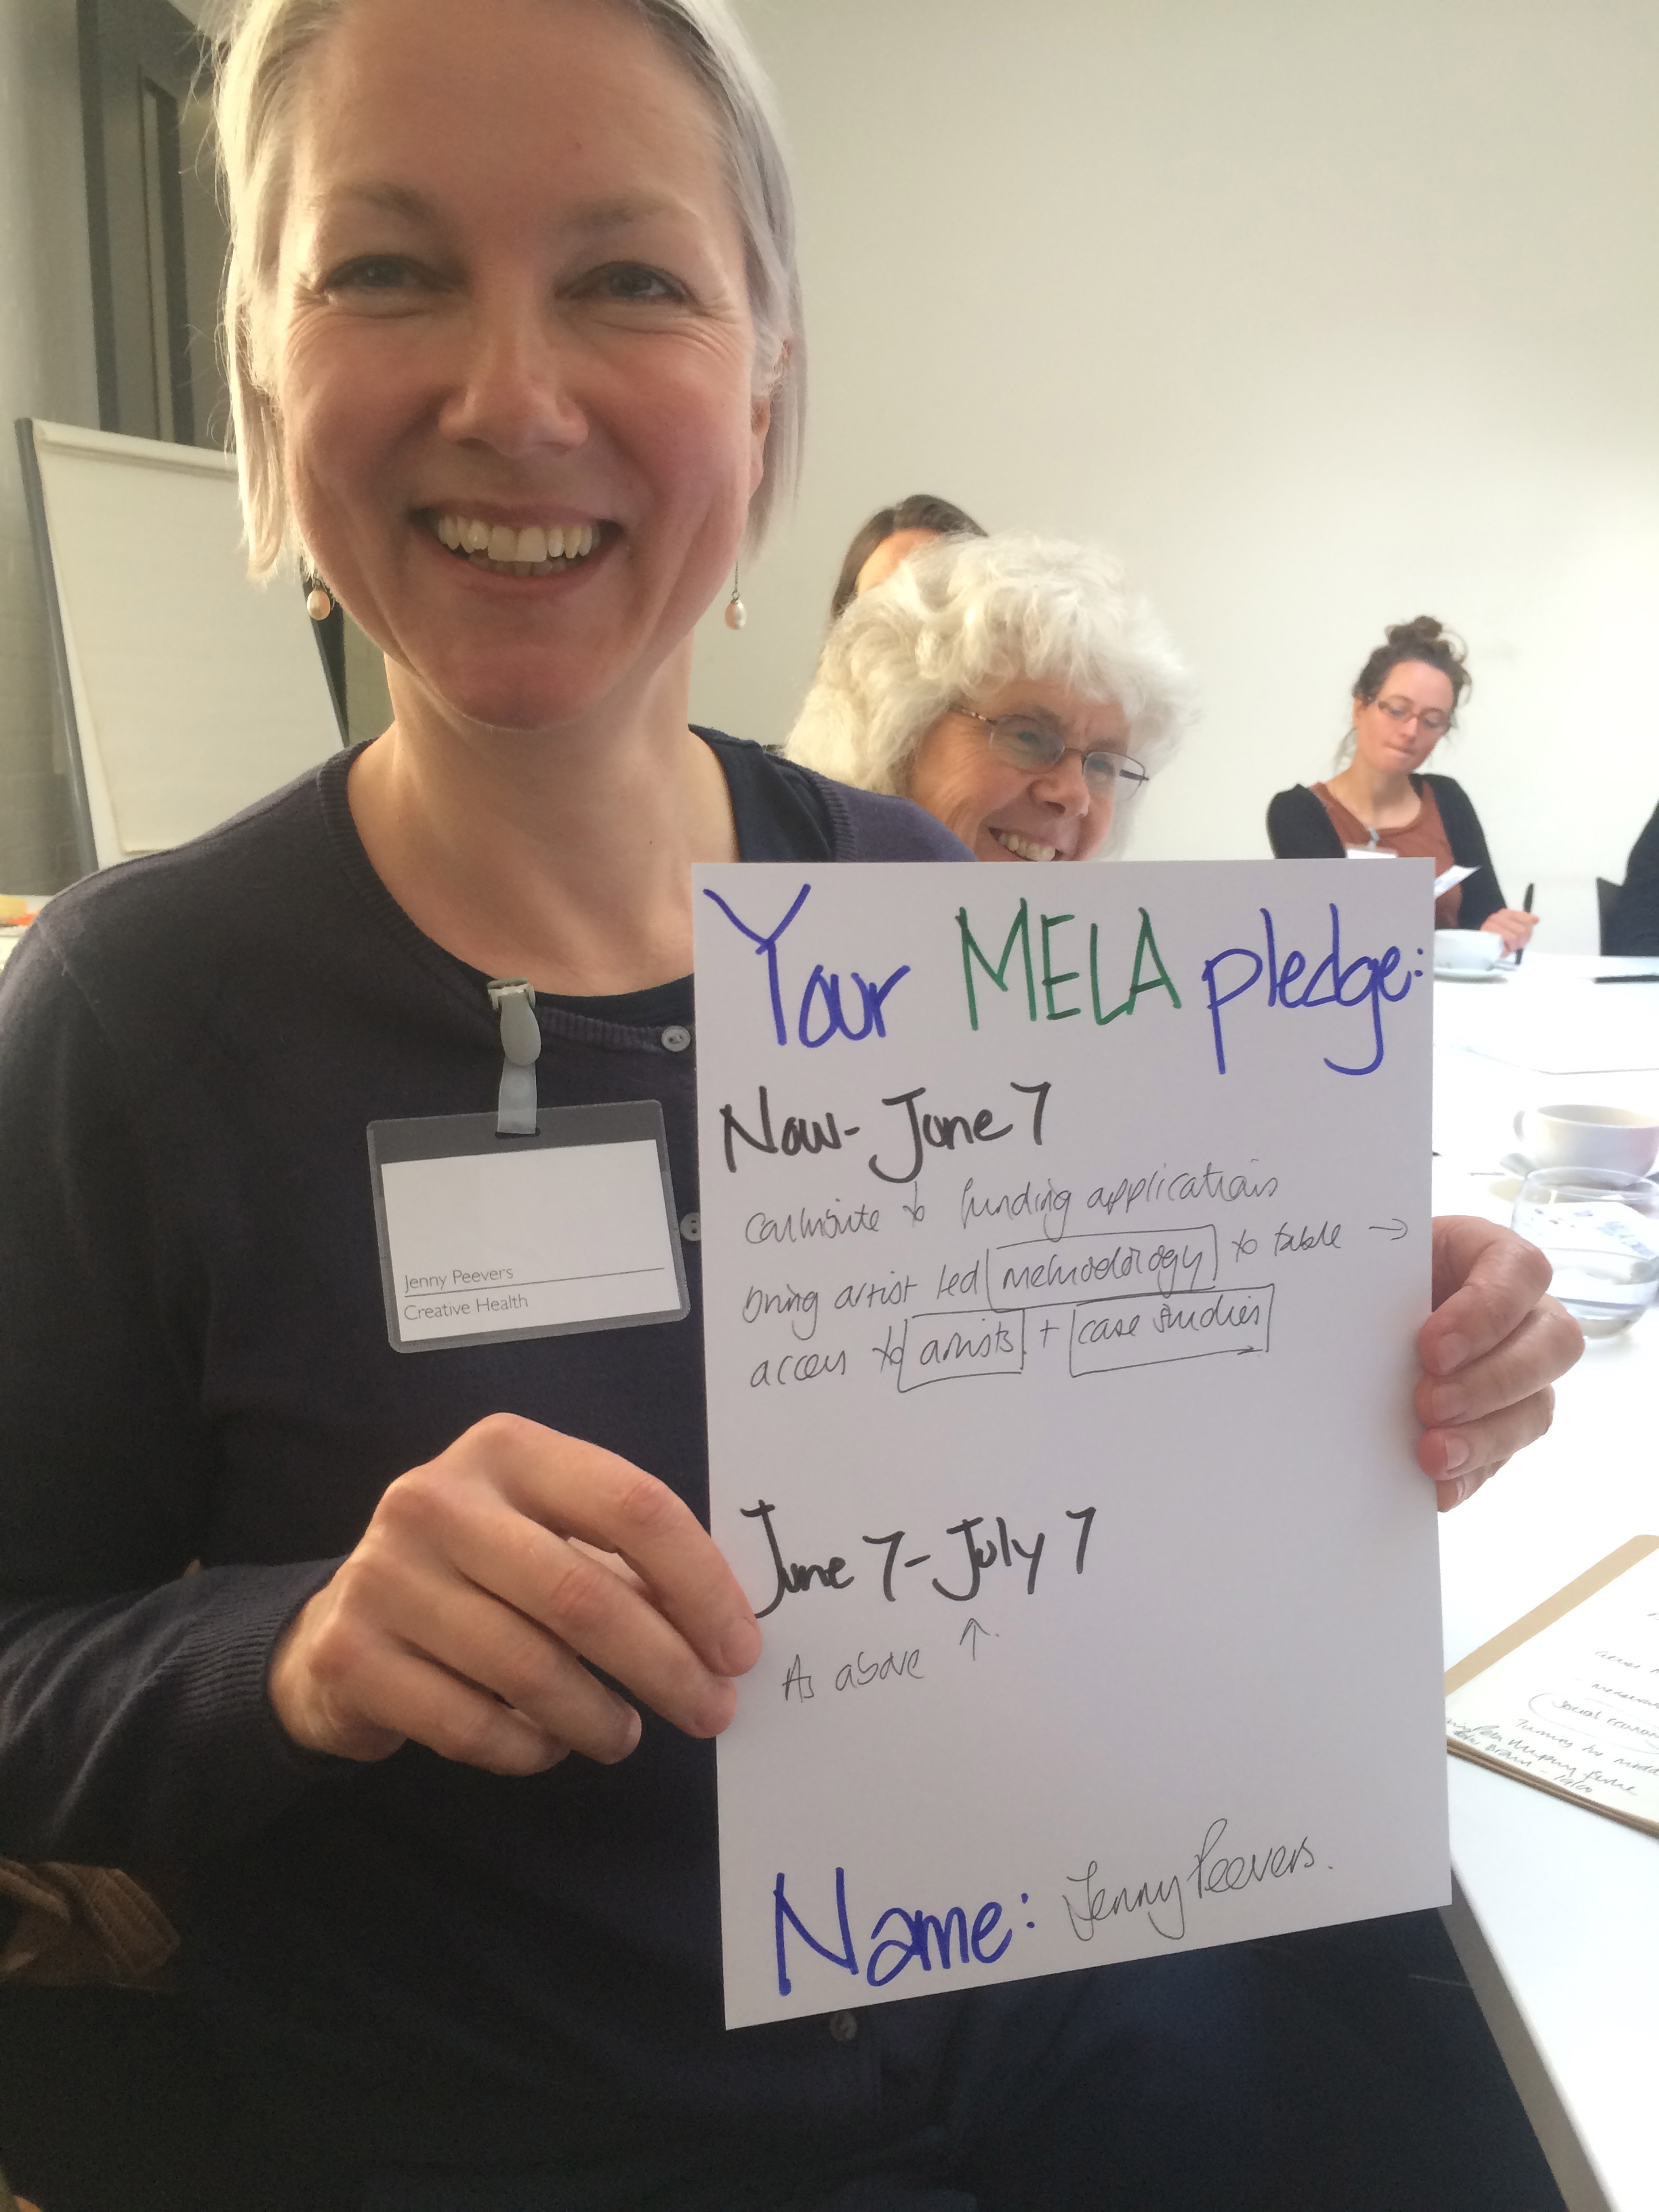 Your MELA pledge:
Now - June 7
contribute to funding applications
bring artist led methodology to table →
access to artists + case studies
June 7 - July 7
As above ↑
Name: Jenny Peevers.
Jenny Peevers
Creative Health
social
Turning